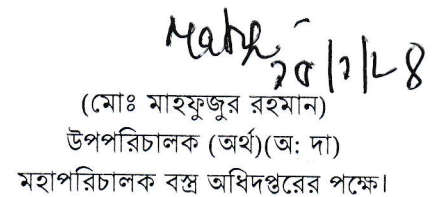 (মোঃ মাহফুজুর রহমান)
উপপরিচালক (অর্থ)(অ: দা)
মহাপরিচালক বস্ত্র অধিদপ্তরের পক্ষে।